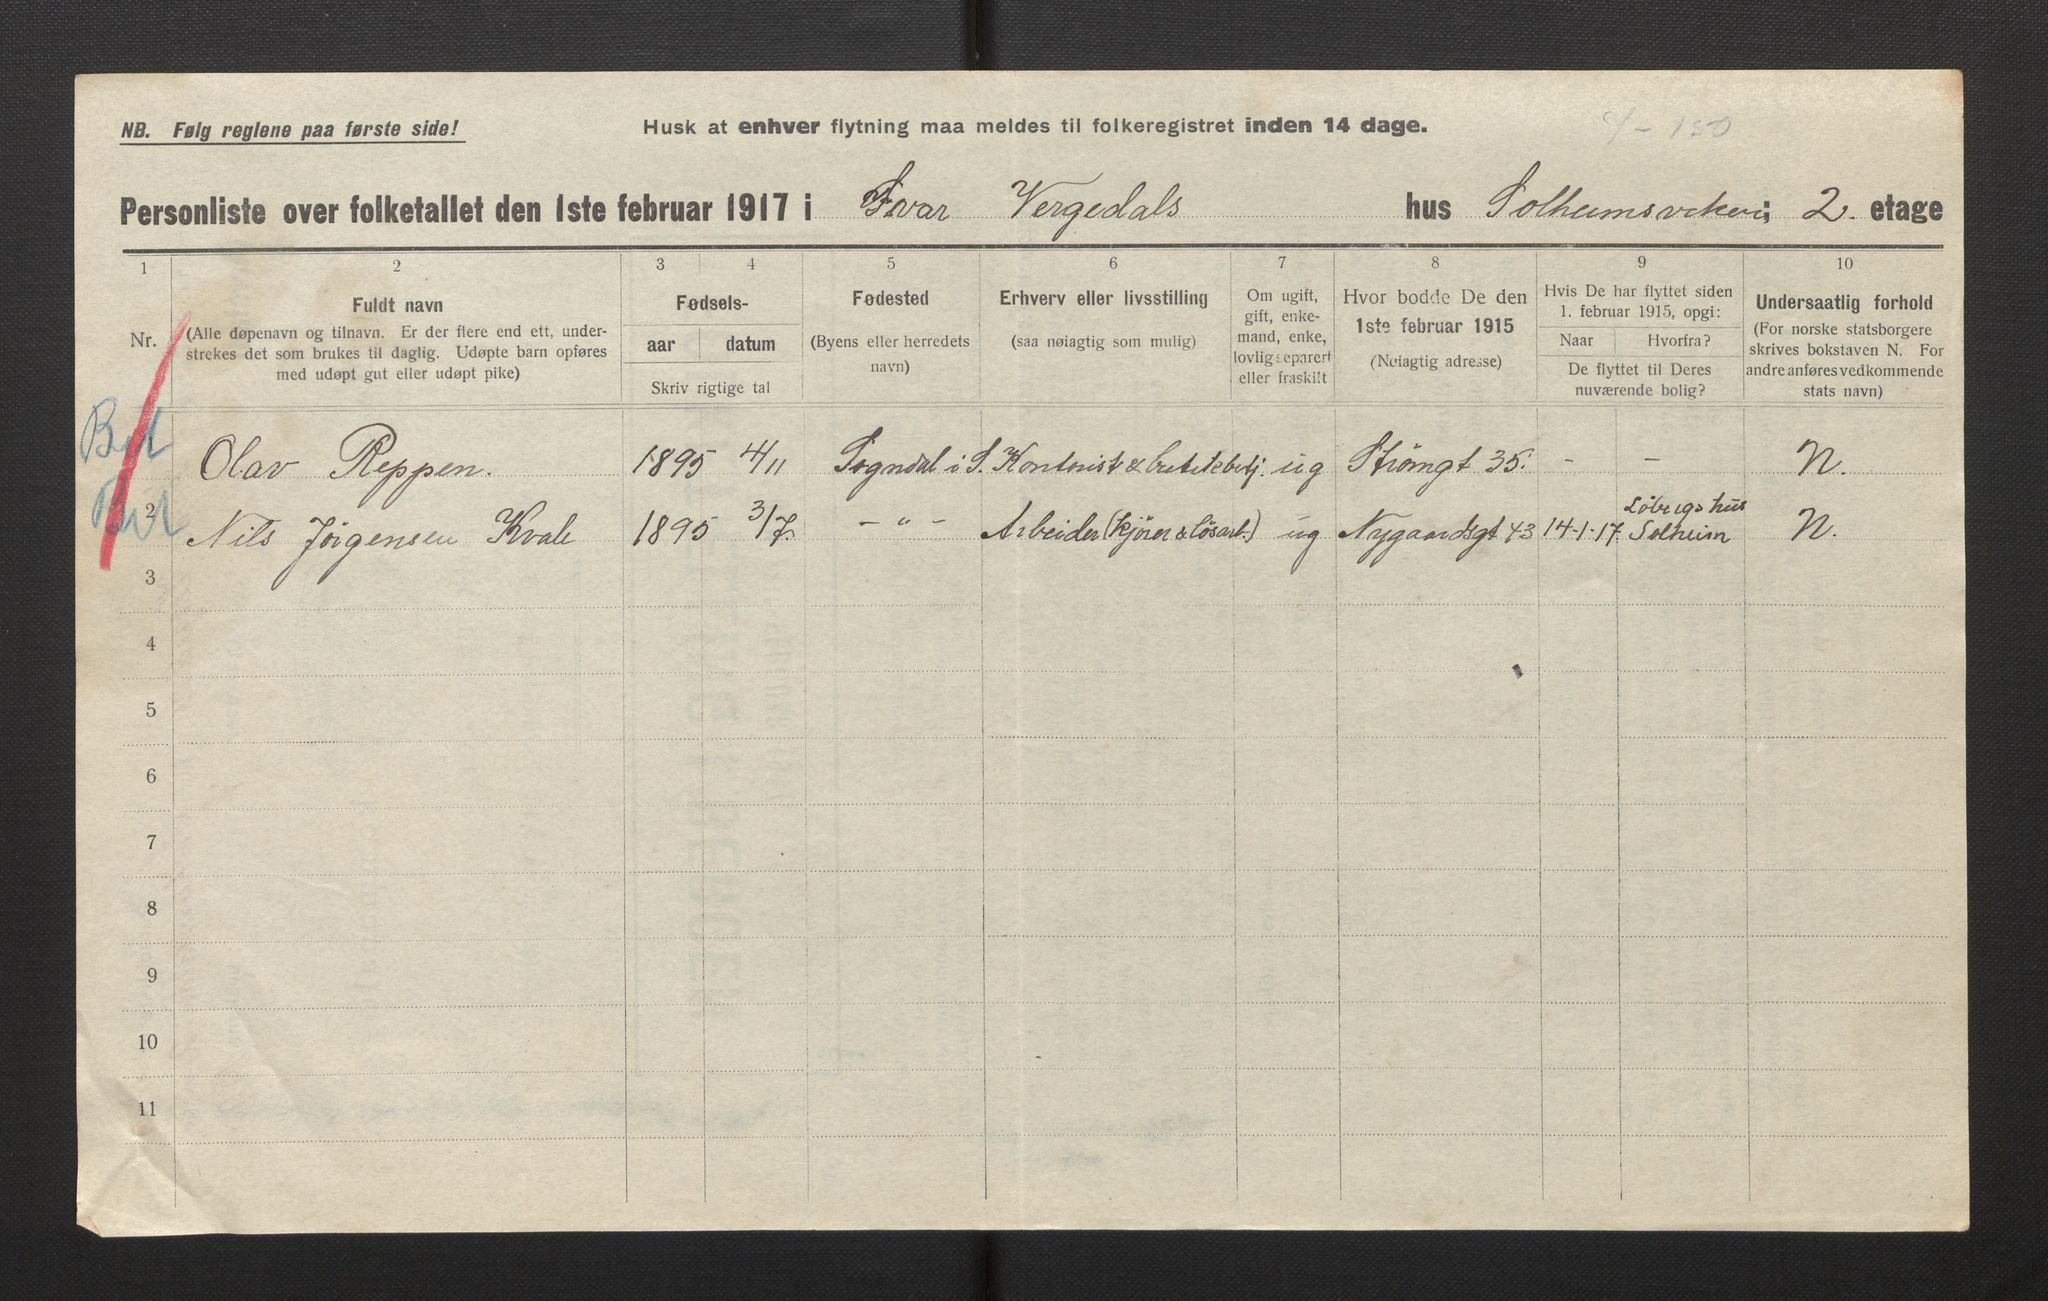 NB. Følg reglene paa første side!
Husk at enhver flytning maa meldes til folkeregistret inden 14 dage.
Personliste over folketallet den 1ste februar 1917 i Ivar Vergedals hus Solheimsviken; 2. etage
1 2 3 4 5 6 7 8 9 10
Nr.
Fuldt navn
(Alle døpenavn og tilnavn. Er der flere end ett, under-
strekes det som brukes til daglig. Udøpte barn opføres
med udøpt gut eller udøpt pike)
Fødsels-
aar datum
Skriv rigtige tal
Fødested
(Byens eller herredets
navn)
Erhverv eller livsstilling
(saa nøiagtig som mulig)
Om ugift,
gift, enke-
mand, enke,
lovlig separert
eller fraskilt
Hvor bodde De den
1ste februar 1915
(Nøiagtig adresse)
Hvis De har flyttet siden
1. februar 1915, opgi:
Naar Hvorfra?
De flyttet til Deres
nuværende bolig?
Undersaatlig forhold
(For norske statsborgere
skrives bokstaven N. For
andre anføres vedkommende
stats navn)
Olav Reppen. 1895 4/11 Sogndal i S. Kontorist & ug Strömgt 35. - - N.
2 Nils Jørgensen Kvale 1895 3/7. -"- Arbeider (kjörer & lösarb.) ug Nygaardsgt 43 14-1-17. Löbergs hus
Solheim N.
3
4
5
6
7
8
9
10
11